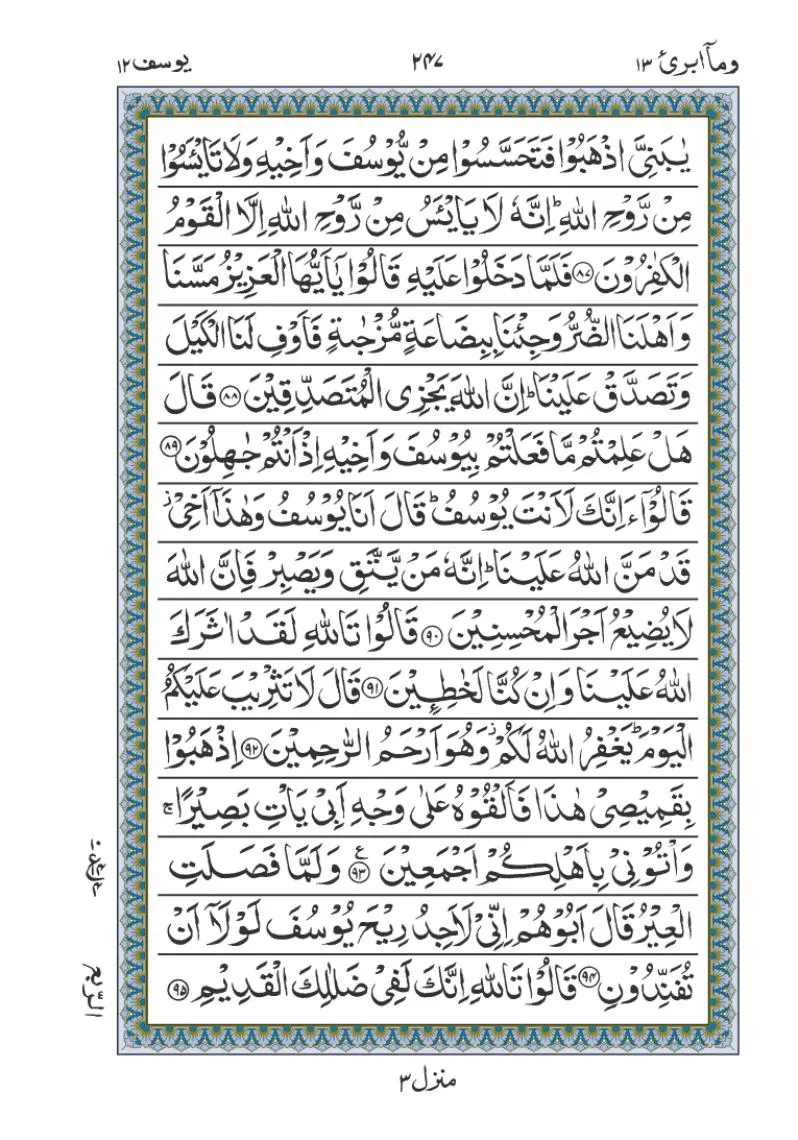 وماۤ ابرئ ١٣
٢٤٧
یوسف ١٢
یٰبَنِیَّ اذْهَبُوْا فَتَحَسَّسُوْا مِنْ یُّوْسُفَ وَاَخِیْهِ وَلَا تَایْـَٔسُوْا
مِنْ رَّوْحِ اللّٰهِ ؕ اِنَّهٗ لَا یَایْـَٔسُ مِنْ رَّوْحِ اللّٰهِ اِلَّا الْقَوْمُ
الْكٰفِرُوْنَ ۝٨٧ فَلَمَّا دَخَلُوْا عَلَیْهِ قَالُوْا یٰۤاَیُّهَا الْعَزِیْزُ مَسَّنَا
وَاَهْلَنَا الضُّرُّ وَجِئْنَا بِبِضَاعَةٍ مُّزْجٰىةٍ فَاَوْفِ لَنَا الْكَیْلَ
وَتَصَدَّقْ عَلَیْنَا ؕ اِنَّ اللّٰهَ یَجْزِی الْمُتَصَدِّقِیْنَ ۝٨٨ قَالَ
هَلْ عَلِمْتُمْ مَّا فَعَلْتُمْ بِیُوْسُفَ وَاَخِیْهِ اِذْ اَنْتُمْ جٰهِلُوْنَ ۝٨٩
قَالُوْۤا ءَاِنَّكَ لَاَنْتَ یُوْسُفُ ؕ قَالَ اَنَا یُوْسُفُ وَهٰذَاۤ اَخِیْ ؗ
قَدْ مَنَّ اللّٰهُ عَلَیْنَا ؕ اِنَّهٗ مَنْ یَّتَّقِ وَیَصْبِرْ فَاِنَّ اللّٰهَ
لَا یُضِیْعُ اَجْرَ الْمُحْسِنِیْنَ ۝٩٠ قَالُوْا تَاللّٰهِ لَقَدْ اٰثَرَكَ
اللّٰهُ عَلَیْنَا وَاِنْ كُنَّا لَخٰطِـِٕیْنَ ۝٩١ قَالَ لَا تَثْرِیْبَ عَلَیْكُمُ
الْیَوْمَ ؕ یَغْفِرُ اللّٰهُ لَكُمْ ؗ وَهُوَ اَرْحَمُ الرّٰحِمِیْنَ ۝٩٢ اِذْهَبُوْا
بِقَمِیْصِیْ هٰذَا فَاَلْقُوْهُ عَلٰی وَجْهِ اَبِیْ یَاْتِ بَصِیْرًا ۚ
وَاْتُوْنِیْ بِاَهْلِكُمْ اَجْمَعِیْنَ ۝٩٣ ع وَلَمَّا فَصَلَتِ
الْعِیْرُ قَالَ اَبُوْهُمْ اِنِّیْ لَاَجِدُ رِیْحَ یُوْسُفَ لَوْلَاۤ اَنْ
تُفَنِّدُوْنِ ۝٩٤ قَالُوْا تَاللّٰهِ اِنَّكَ لَفِیْ ضَلٰلِكَ الْقَدِیْمِ ۝٩٥
الربع
منزل ٣